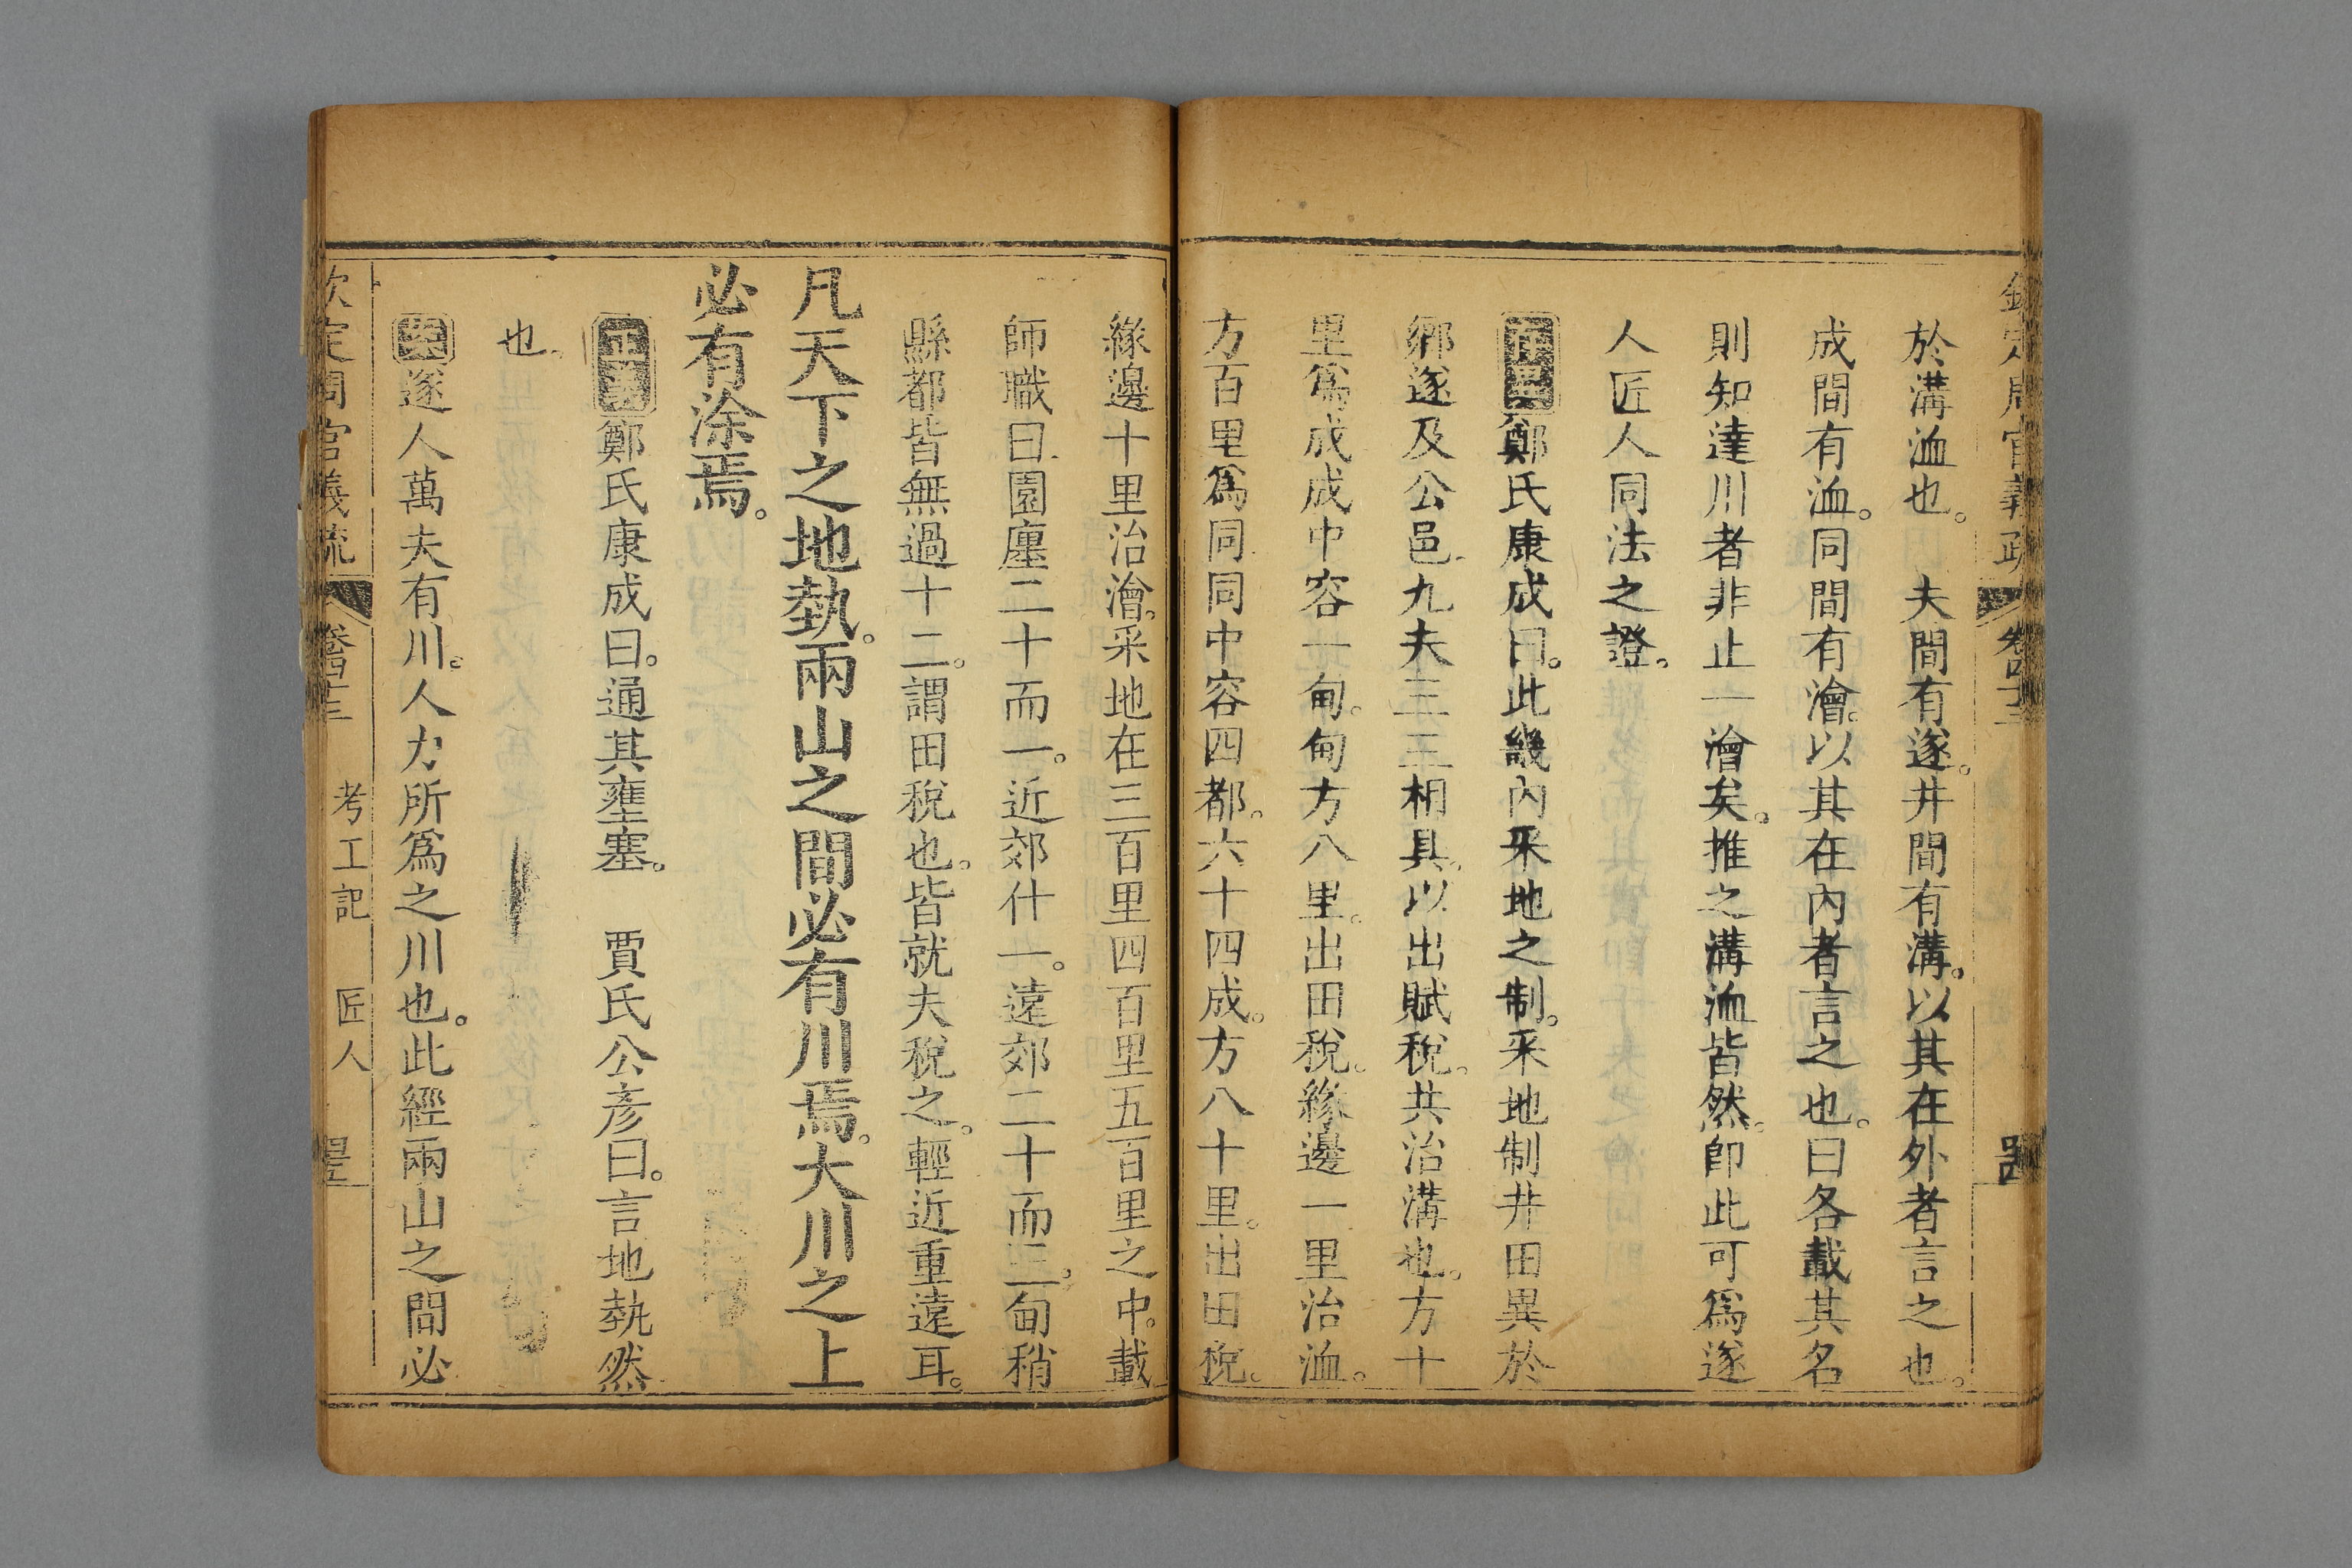 於溝洫也。　夫間有遂。井間有溝。以其在外者言之也。
成間有洫。同間有澮。以其在內者言之也。曰各載其名
則知達川者非止一澮矣。推之溝洫皆然。卽此可爲遂
人匠人同法之證。
鄭氏康成曰。此畿內采地之制。采地制井田異於
鄉遂及公邑。九夫三三相具。以出賦稅。共治溝也。方十
里爲成成中容一甸。甸方八里。出田稅。緣邊一里治洫。
方百里爲同。同中容四都。六十四成。方八十里。出田稅。
緣邊十里治澮。采地在三百里四百里五百里之中。載
師職曰。園廛二十而一。近郊什一。遠郊二十而三。甸稍
縣都皆無過十二。謂田稅也。皆就夫稅之。輕近重遠耳。
凡天下之地埶。兩山之間必有川焉。大川之上
必有涂焉。
正義鄭氏康成曰。通其壅塞。　賈氏公彥曰。言地埶然
也。
案遂人萬夫有川。人力所爲之川也。此經兩山之間必
欽定周官義疏 卷四十三 考工記 匠人